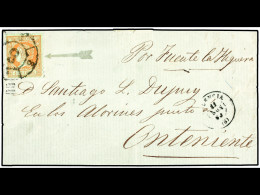 Por Fuente la Higuera
D. Santiago L. Dupuy
En los Alorines junto
Onteniente